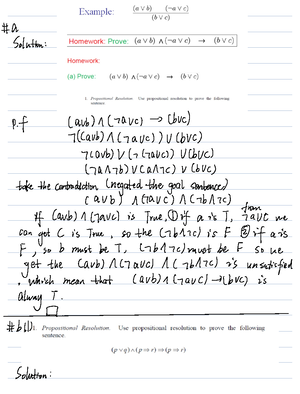 Example: (a ∨ b) (¬a ∨ c)
(b ∨ c)
#a
Solution:
Homework: Prove: (a ∨ b) ∧ (¬a ∨ c) → (b ∨ c)
Homework:
(a) Prove: (a ∨ b) ∧ (¬a ∨ c) → (b ∨ c)
1. Propositional Resolution. Use propositional resolution to prove the following
sentence.
p.f (a∨b) ∧ (¬a∨c) → (b∨c)
¬((a∨b) ∧ (¬a∨c)) ∨ (b∨c)
¬(a∨b) ∨ (¬(¬a∨c)) ∨ (b∨c)
(¬a∧¬b) ∨ (a∧¬c) ∨ (b∨c)
take the contradiction (negated the goal sentence)
(a∨b) ∧ (¬a∨c) ∧ (¬b∧¬c)
if (a∨b) ∧ (¬a∨c) is True, ① if a is T, from ¬a∨c we
can get C is True, so the (¬b∧¬c) is F ② if a is
F, so b must be T, (¬b∧¬c) must be F so we
get the (a∨b) ∧ (¬a∨c) ∧ (¬b∧¬c) is unsatisfied
, which mean that (a∨b) ∧ (¬a∨c) → (b∨c) is
alway T.
#b(1) 1. Propositional Resolution. Use propositional resolution to prove the following
sentence.
(p ∨ q) ∧ (p ⇒ r) ⇒ (p ⇒ r)
Solution: